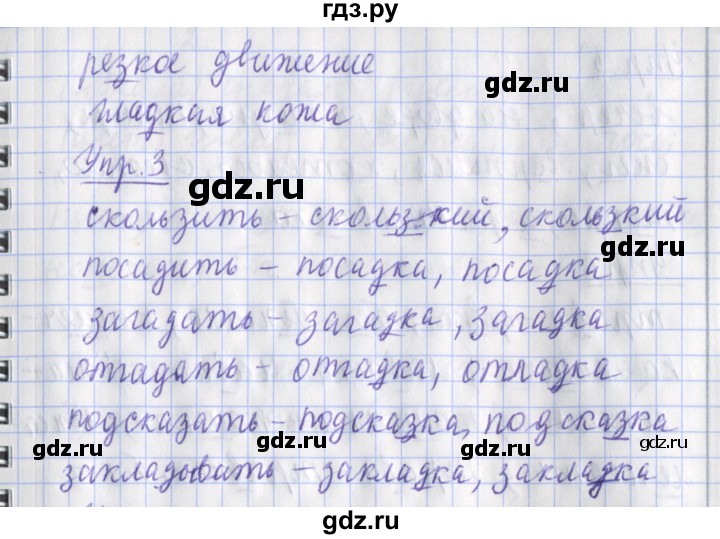 гдз.ру
резкое движение
gdz.ru
гладкая кожа
Упр.3
gdz.ru
скользить – скользкий, скользкий
gdz.ru
посадить – посадка, посадка
загадать – загадка, загадка
отгадать – отгадка, отгадка
подсказать – подсказка, подсказка
gdz.ru gdz.ru gdz.ru
закладывать – закладка, закладка
gdz.ru